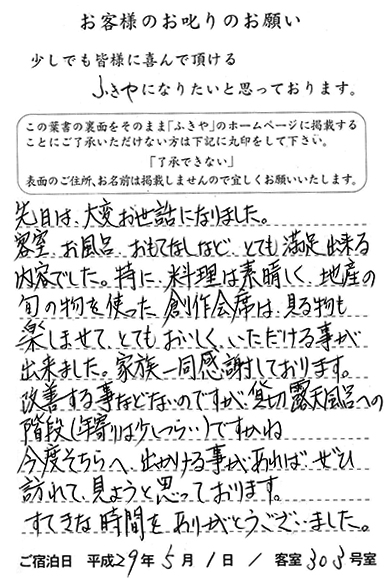 お客様のお叱りのお願い
少しでも皆様に喜んで頂ける
ふきやになりたいと思っております。
この葉書の裏面をそのまま「ふきや」のホームページに掲載する
ことにご了承いただけない方は下記に丸印をして下さい。
「了承できない」
表面のご住所、お名前は掲載しませんので宜しくお願いいたします。
先日は、大変お世話になりました。
客室、お風呂、おもてなしなど、とても満足出来る
内容でした。特に、料理は素晴しく、地産の
旬の物を使った、創作会席は、見る物も
楽しませて、とてもおいしく、いただける事が
出来ました。家族一同感謝しております。
改善する事などないのですが、貸切露天風呂への
階段(年寄りは少しつらい)ですかね
今度そちらへ、出かける事があれば、ぜひ
訪れて、見ようと思っております。
すてきな時間を、ありがとうございました。
ご宿泊日 平成29年5月1日 / 客室303号室